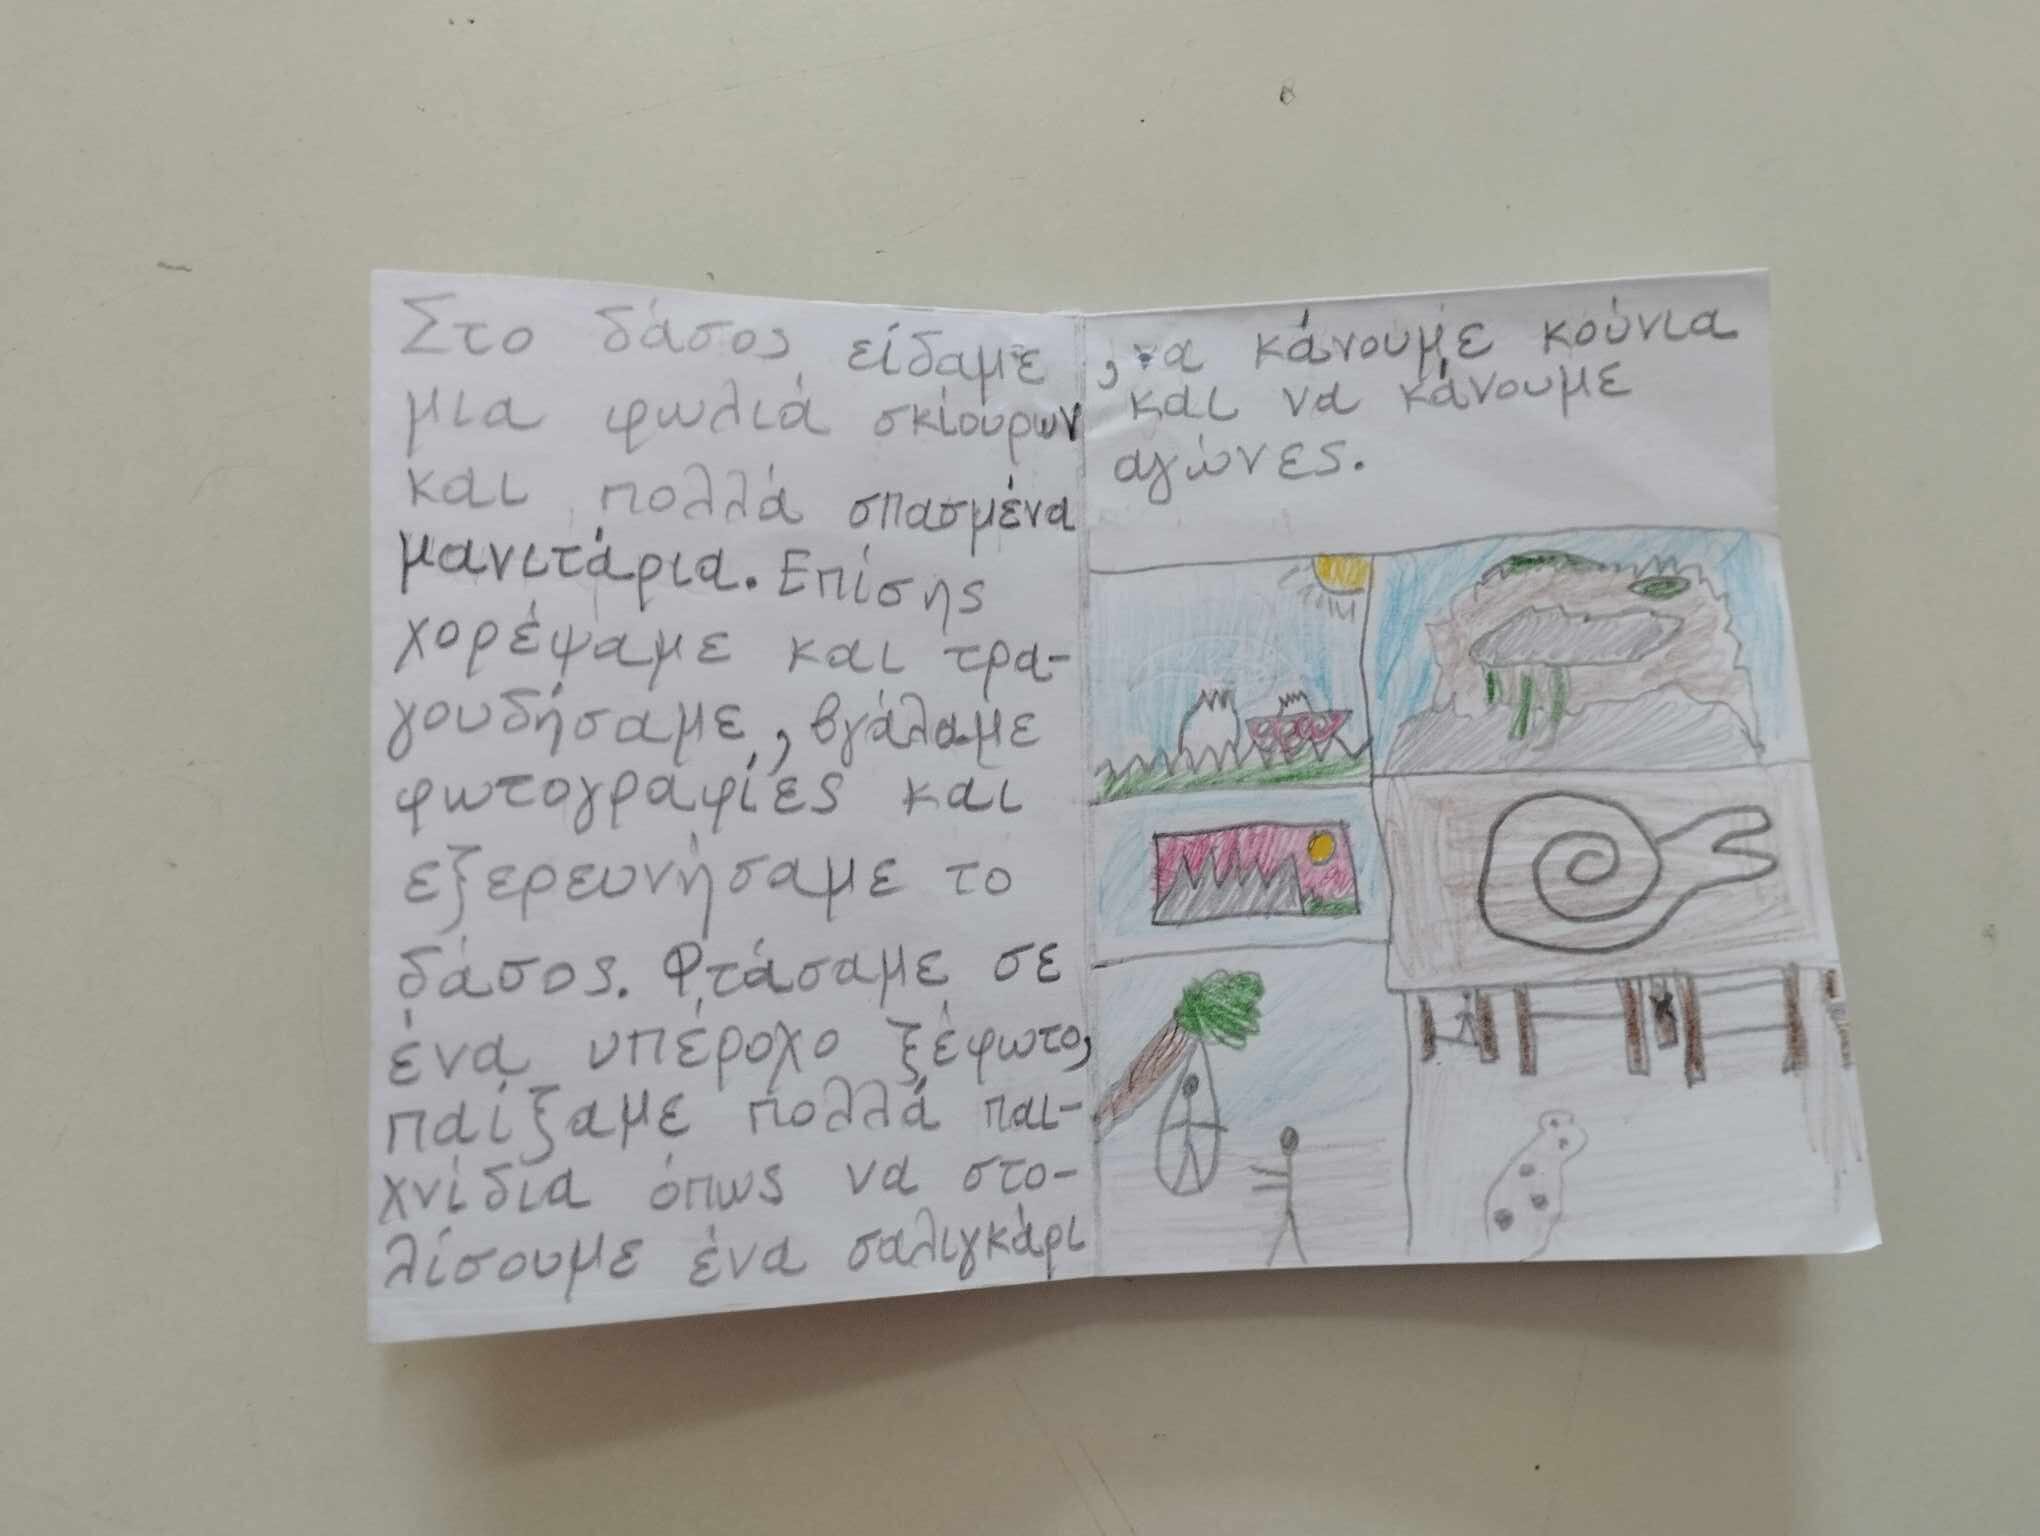 Στο δάσος είδαμε
μια φωλιά σκίουρων
και πολλά σπασμένα
μανιτάρια. Επίσης
χορέψαμε και τρα-
γουδήσαμε, βγάλαμε
φωτογραφίες και
εξερευνήσαμε το
δάσος. Φτάσαμε σε
ένα υπέροχο ξέφωτο,
παίξαμε πολλά παι-
χνίδια όπως να στο-
λίσουμε ένα σαλιγκάρι
, να κάνουμε κούνια
και να κάνουμε
αγώνες.